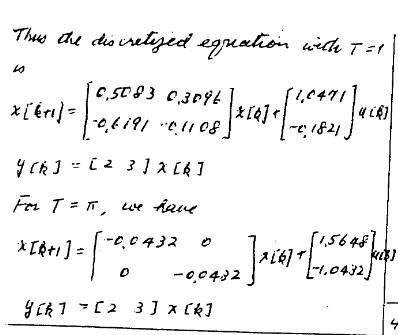 Thus the discretized equation with T=1
is
x[k+1] = [0,5083 0,3096; -0,6191 -0,1108] x[k] + [1,0471; -0,1821] u[k]
y[k] = [2 3] x[k]
For T = π, we have
x[k+1] = [-0,0432 0; 0 -0,0432] x[k] + [1,5648; -1,0432] u[k]
y[k] = [2 3] x[k]
4